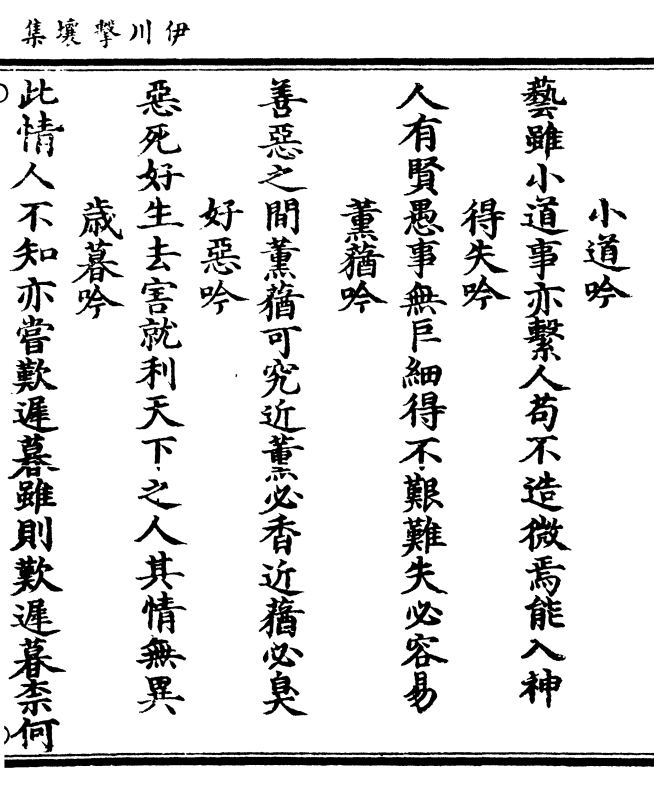 伊川擊壤集
小道吟
藝雖小道事亦繫人苟不造微焉能入神
得失吟
人有賢愚事無巨細得不艱難失必容易
薰蕕吟
善惡之間薰蕕可究近薰必香近蕕必臭
好惡吟
惡死好生去害就利天下之人其情無異
歲暮吟
此情人不知亦嘗歎遲暮雖則歎遲暮柰何